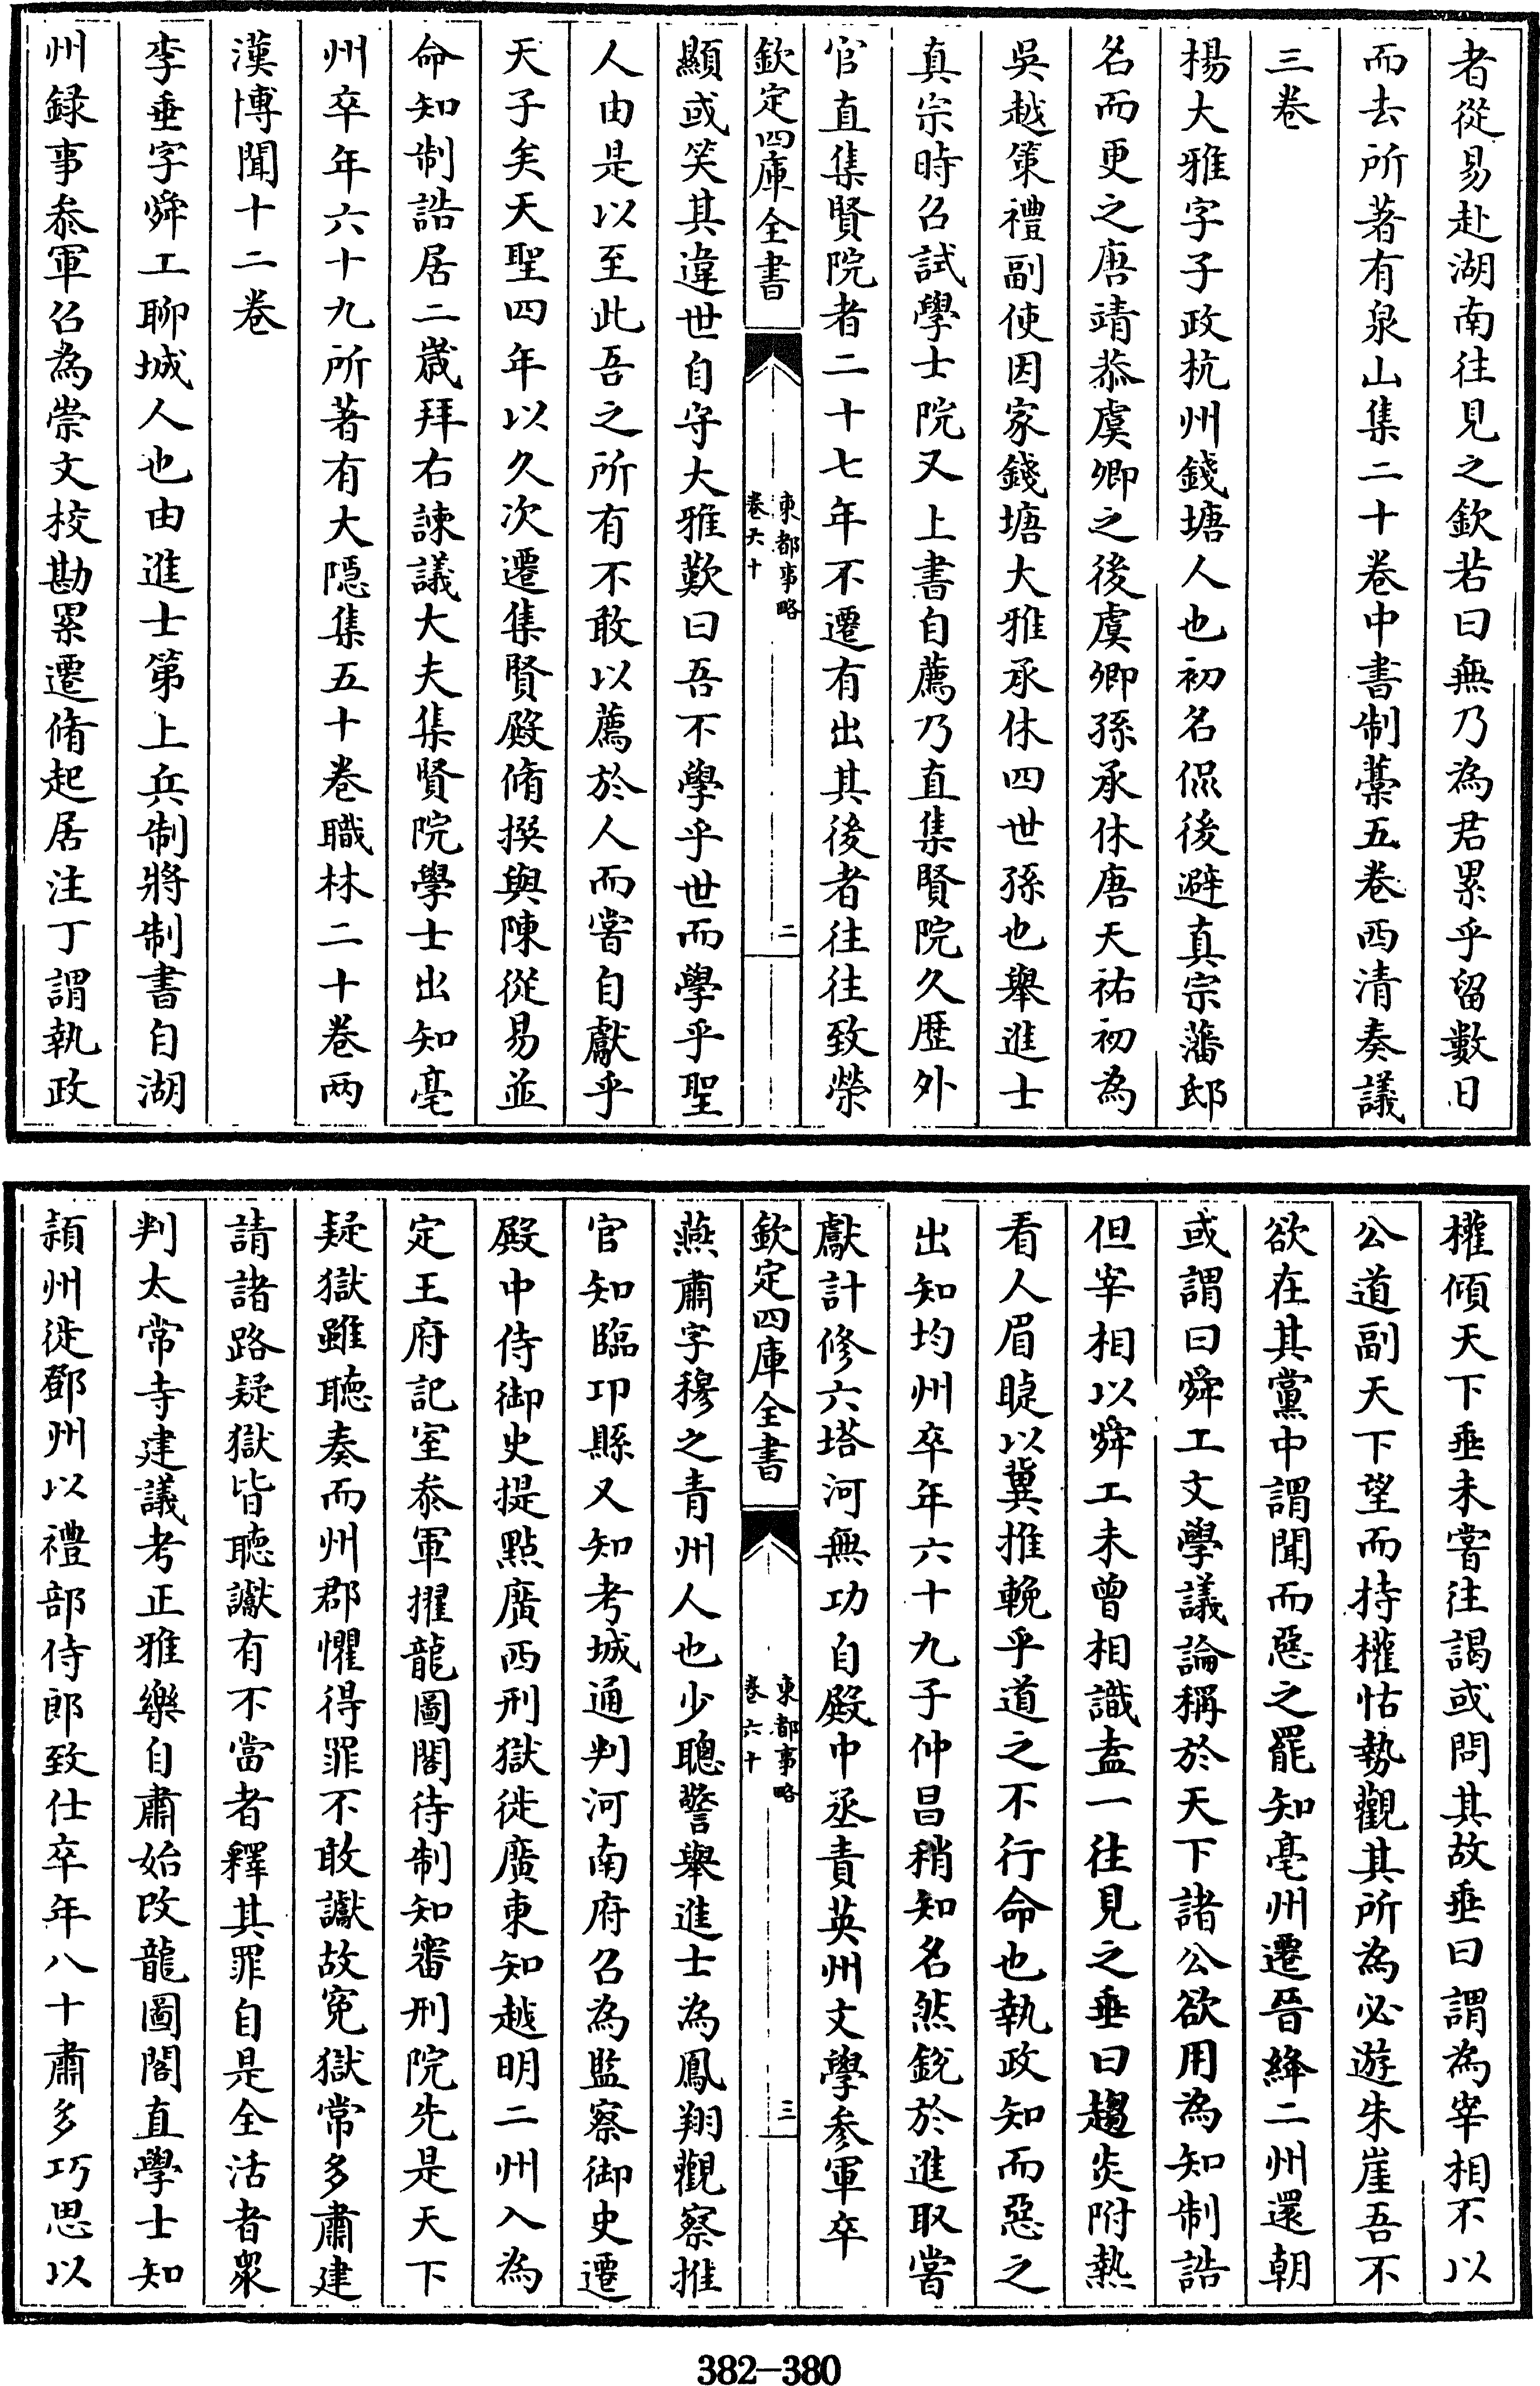 者從易赴湖南往見之欽若曰無乃為君累乎留數日
而去所著有泉山集二十卷中書制藁五卷西清奏議
三卷
楊大雅字子政杭州錢塘人也初名侃後避真宗藩邸
名而更之唐靖恭虞卿之後虞卿孫承休唐天祐初為
吳越策禮副使因家錢塘大雅承休四世孫也舉進士
真宗時召試學士院又上書自薦乃直集賢院久歷外
官直集賢院者二十七年不遷有出其後者往往致榮
欽定四庫全書
東都事略
卷六十
二
顯或笑其違世自守大雅歎曰吾不學乎世而學乎聖
人由是以至此吾之所有不敢以薦於人而嘗自獻乎
天子矣天聖四年以久次遷集賢殿脩撰與陳從易並
命知制誥居二歲拜右諫議大夫集賢院學士出知亳
州卒年六十九所著有大隱集五十卷職林二十卷兩
漢博聞十二卷
李垂字舜工聊城人也由進士第上兵制將制書自湖
州録事叅軍召為崇文校勘累遷脩起居注丁謂執政
權傾天下垂未嘗往謁或問其故垂曰謂為宰相不以
公道副天下望而持權怙勢觀其所為必遊朱崖吾不
欲在其黨中謂聞而惡之罷知亳州遷晉絳二州還朝
或謂曰舜工文學議論稱於天下諸公欲用為知制誥
但宰相以舜工未曾相識盍一往見之垂曰趨炎附熱
看人眉睫以冀推輓乎道之不行命也執政知而惡之
出知均州卒年六十九子仲昌稍知名然銳於進取嘗
獻計修六塔河無功自殿中丞責英州文學參軍卒
欽定四庫全書
東都事略
卷六十
三
燕肅字穆之青州人也少聰警舉進士為鳳翔觀察推
官知臨邛縣又知考城通判河南府召為監察御史遷
殿中侍御史提點廣西刑獄徙廣東知越明二州入為
定王府記室叅軍擢龍圖閣待制知審刑院先是天下
疑獄雖聽奏而州郡懼得罪不敢讞故冤獄常多肅建
請諸路疑獄皆聽讞有不當者釋其罪自是全活者衆
判太常寺建議考正雅樂自肅始改龍圖閣直學士知
潁州徙鄧州以禮部侍郎致仕卒年八十肅多巧思以
382-380